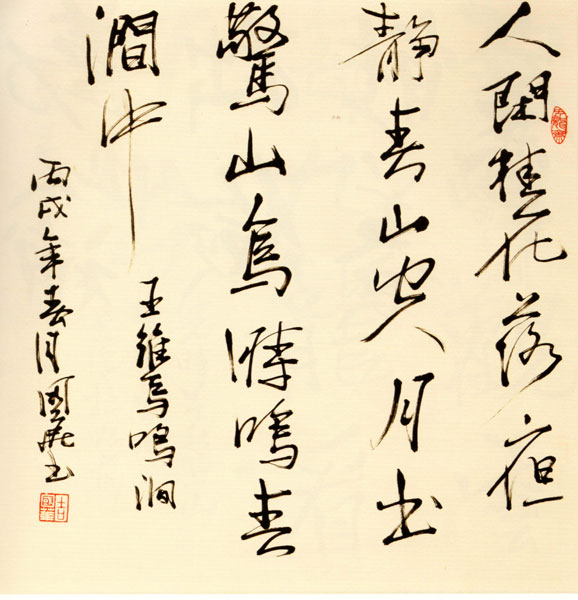 人閑桂花落夜
靜春山空月出
驚山鳥時鳴春
澗中
王維鳥鳴澗
丙戌年春月國書